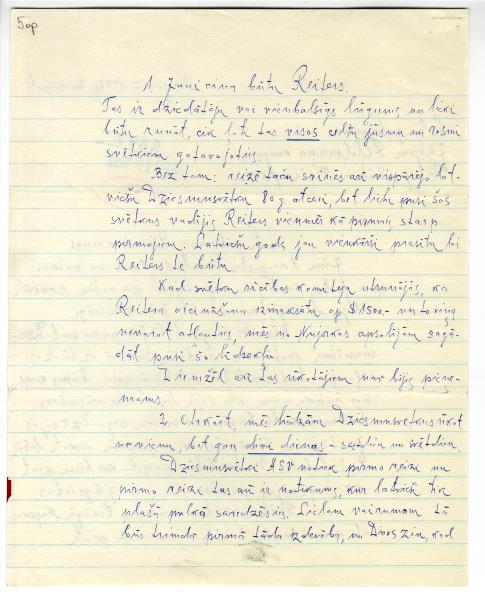 5op
1. Ļauni cina būtu Reiters.
Tas ir dziedātāju vai vienbalsīgs lūgums un lieki
būtu runāt, cik ļoti tas visos celtu jūsmu un rosmi
svētkiem gatavojoties.
Bez tam: reizē taču svinēs arī vispārējo lat-
viešu Dziesmusvētku 80 g. atceri, bet lielu pusi šos
svētkus vadījis Reiters vienmēr kā pirmais starp
pirmajiem. Latviešu gods jau vienkārši prasītu, lai
Reiters te būtu.
Kad svētku rīcības komiteja atrunājās, ka
Reitera aicināšana izmaksātu ap $1500.- un to viņa
nevarot atļauties, mēs no Ņujorkas apsolījām sagā-
dāt pusi šo līdzekļu.
Diemžēl arī tas rīkotājiem nav bijis pieņe-
mams.
2. Otrkārt, mēs lūdzām Dziesmusvētkus rīkot
nevienu, bet gan divi dienas – sestdien un svētdien.
Dziesmusvētki ASV notiek pirmo reizi un
pirmo reizi tas arī ir notikums, kur latvieši tik
plašā pulkā sanāks. Lielam vairumam tā
būs trimdā pirmā tāda izdevība, un Dievs zin, kad